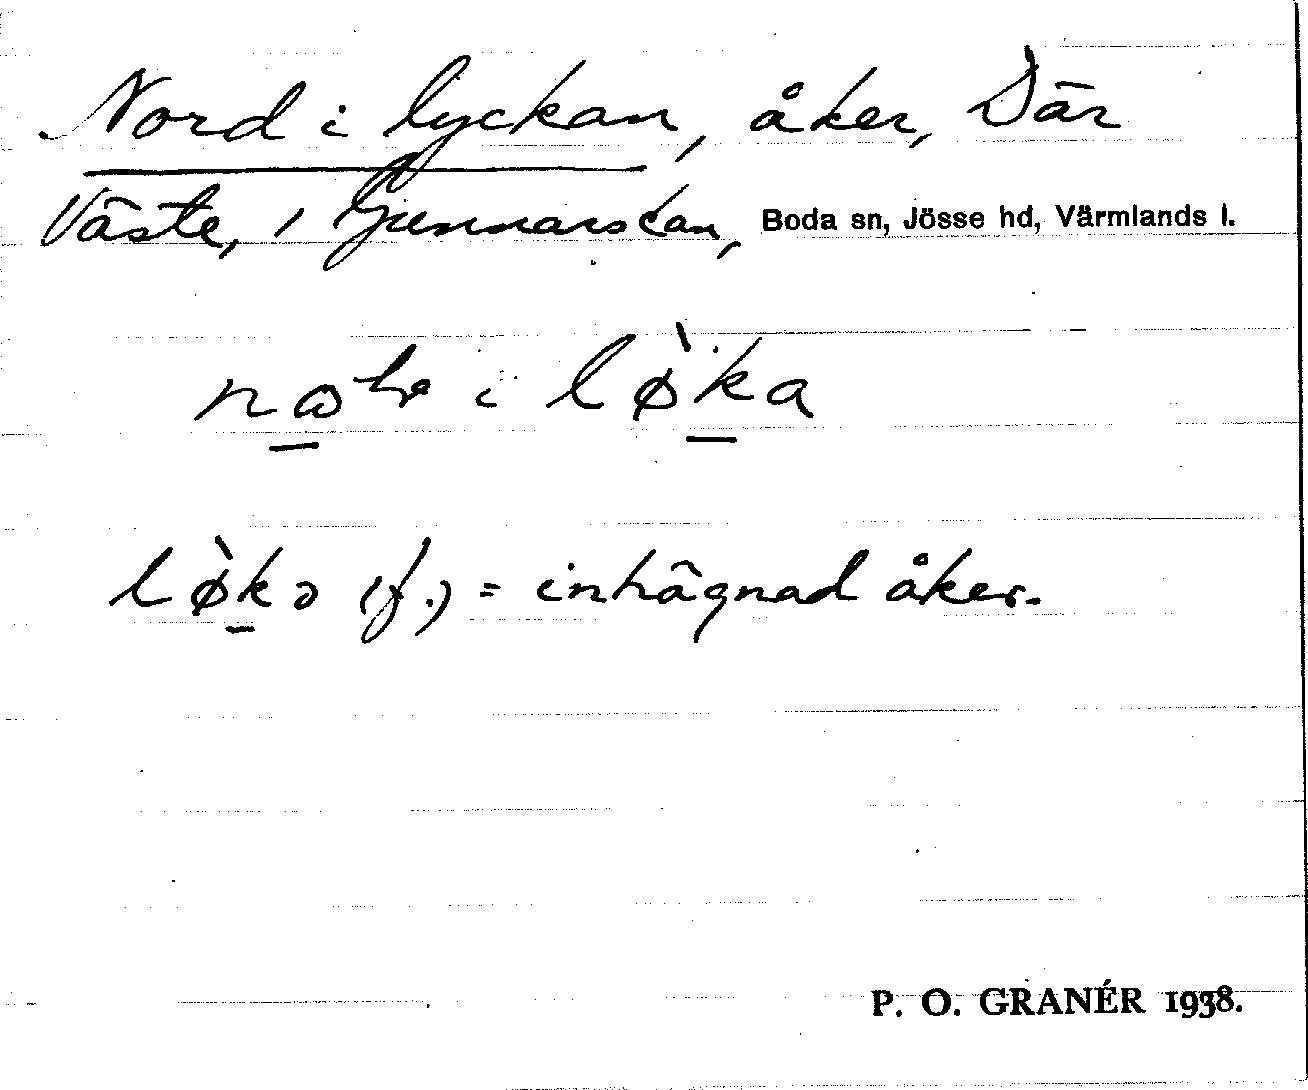 Nord i lyckan, åker, Där
Väste, 1 Gunnarskan, Boda sn, Jösse hd, Värmlands l.
i lø̀ka
lø̀kə (f.) = inhägnad åker.
P. O. GRANÉR 1938.